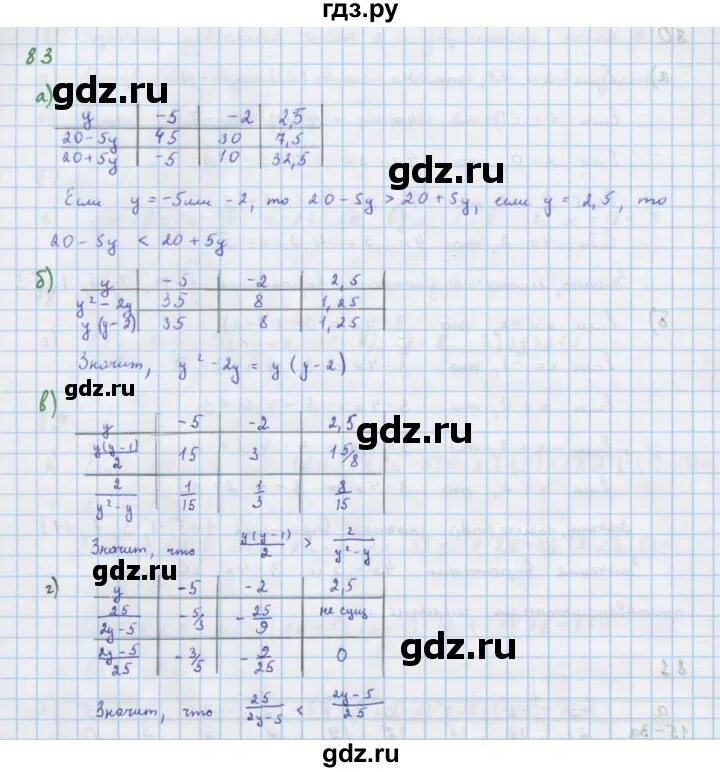 гдз.ру
83
gdz.ru
а)
y | -5 | -2 | 2,5
20-5y | 45 | 30 | 7,5
20+5y | -5 | 10 | 32,5
gdz.ru
Если y = -5 или -2, то 20-5y > 20+5y, если y = 2,5, то
20-5y < 20+5y
б)
y | -5 | -2 | 2,5
y² - 2y | 35 | 8 | 1,25
y(y-2) | 35 | 8 | 1,25
Значит, y² - 2y = y(y-2)
gdz.ru
в)
y | -5 | -2 | 2,5
gdz.ru
y(y-1)/2 | 15 | 3 | 15/8
2/(y²-y) | 1/15 | 1/3 | 8/15
Значит, что y(y-1)/2 > 2/(y²-y)
gdz.ru
г)
y | -5 | -2 | 2,5
25/(2y-5) | -5/3 | -25/9 | не сущ
(2y-5)/25 | -3/5 | -9/25 | 0
gdz.ru
Значит, что 25/(2y-5) < (2y-5)/25
gdz.ru